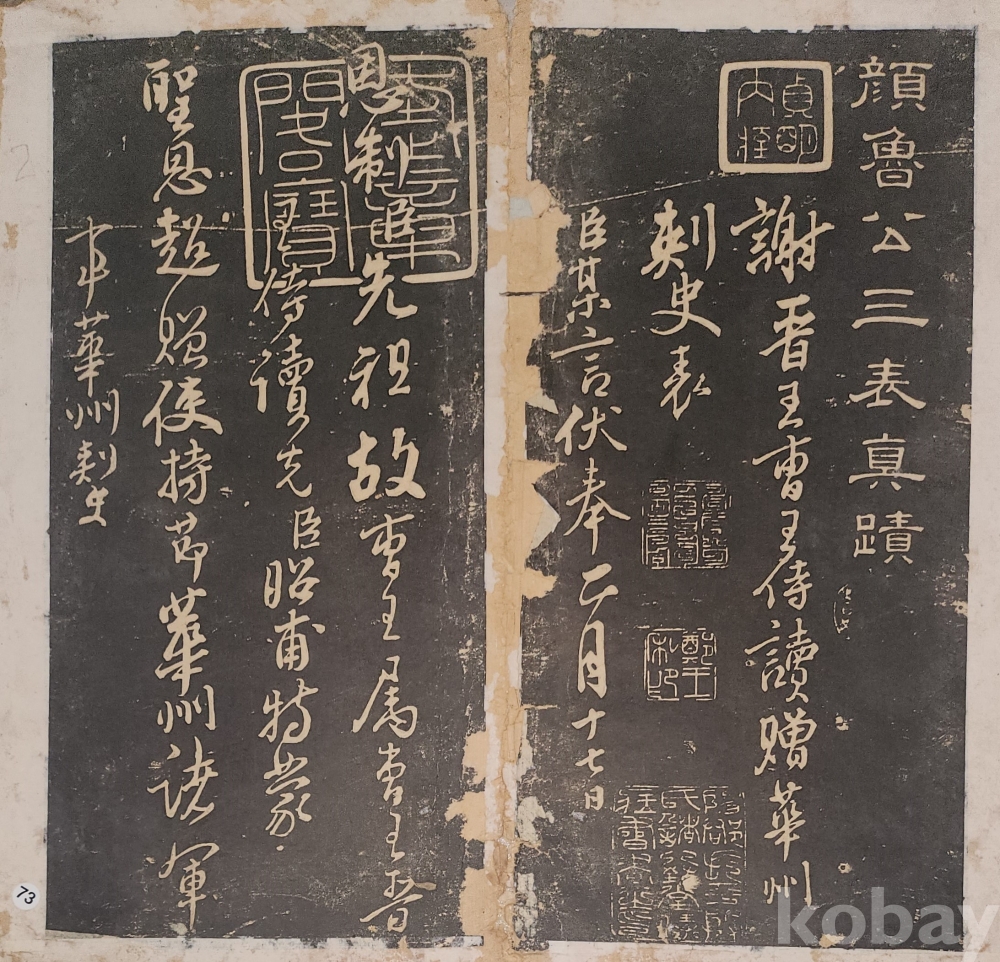 顔魯公三表真蹟
謝晉王曹王侍讀贈華州
刺史表
臣某言伏奉二月十七日
恩制臣先祖故曹王属曹王晉
王侍讀先臣昭甫特蒙
聖恩超贈使持節華州諸軍
事華州刺史
73
kobay